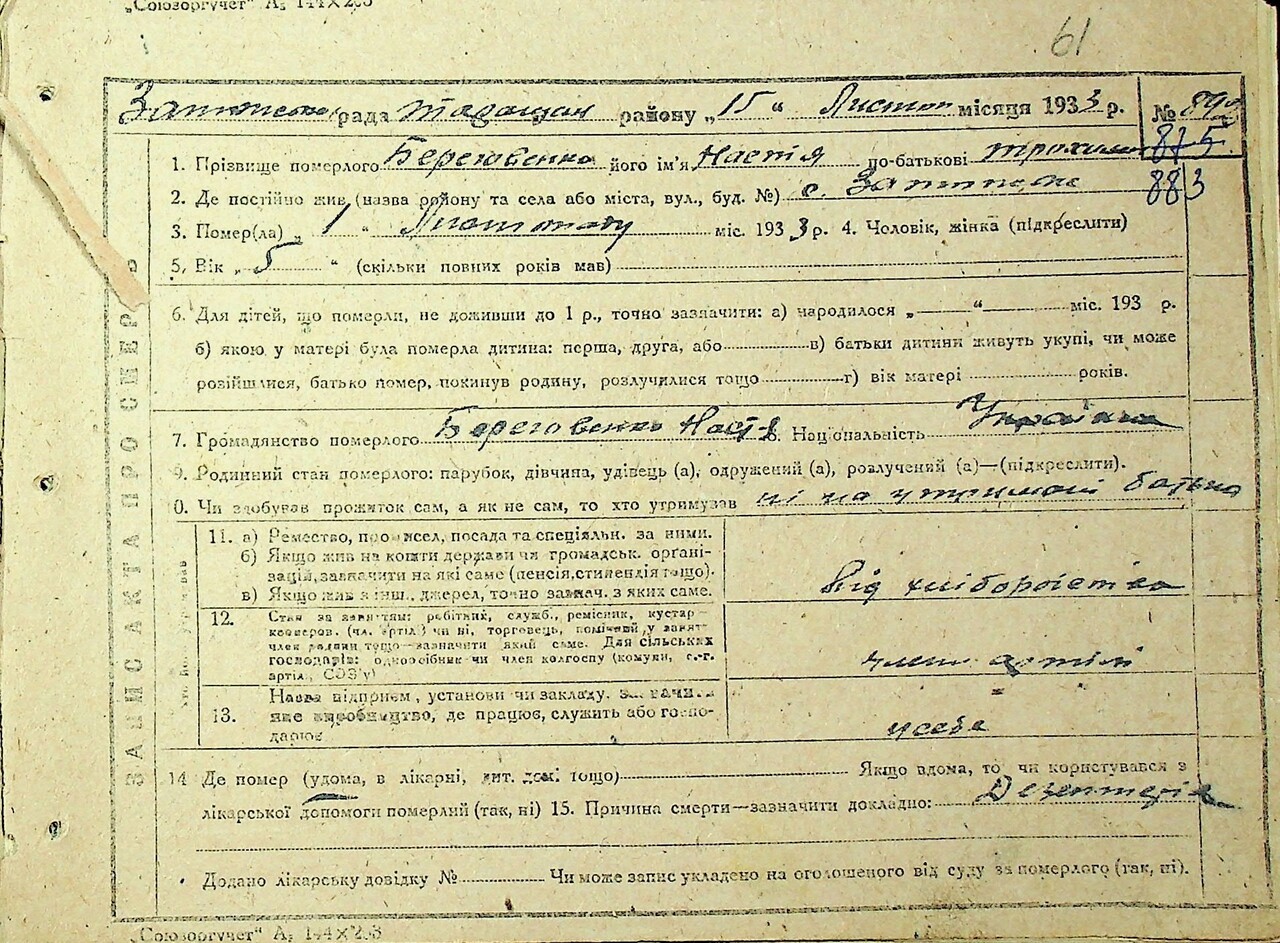 „Союзоргучет“ А₅ 144×203
61
рада Таращан району „15“ Листоп місяця 1933 р. №
875
1. Прізвище померлого Береговенко його ім'я Настя по-батькові Трохим
2. Де постійно жив (назва району та села або міста, вул., буд. №) с.
883
3. Помер(ла) „1“ Листопаду міс. 1933 р. 4. Чоловік, жінка (підкреслити)
5. Вік „5“ (скільки повних років мав)
6. Для дітей, що померли, не доживши до 1 р., точно зазначити: а) народилося „ “ міс. 193 р.
б) якою у матері була померла дитина: перша, друга, або в) батьки дитини живуть укупі, чи може
розійшлися, батько помер, покинув родину, розлучилися тощо г) вік матері років.
7. Громадянство померлого Береговенко Настя 8. Національність Українка
9. Родинний стан померлого: парубок, дівчина, удівець (а), одружений (а), розлучений (а)—(підкреслити).
0. Чи здобував прожиток сам, а як не сам, то хто утримував ні на утримані батька
11. а) Ремество, промисел, посада та спеціяльн. за ними.
б) Якщо жив на кошти держави чи громадськ. орґані-
зацій, зазначити на які саме (пенсія, стипендія тощо).
в) Якщо жив з інш. джерел, точно зазнач. з яких саме.
Від хліборобства
12. Стан за заняттям: робітник, служб., ремісник, кустар—
кооперов. (чл. артілі) чи ні, торговець, помічний у занят.
член родини тощо—зазначити який саме. Для сільських
господарів: одноосібник чи член колгоспу (комуни, с.-г.
артіл., СОЗ'у)
член артілі
Назва підприєм., установи чи закладу.
13. яке виробництво, де працює, служить або госпо-
дарює
у себе
14 Де помер (удома, в лікарні, дит. домі тощо) Якщо вдома, то чи користувався з
лікарської допомоги померлий (так, ні) 15. Причина смерти—зазначити докладно: Дезентерія
Додано лікарську довідку № Чи може запис укладено на оголошеного від суду за померлого (так, ні).
ЗАПИС АКТА ПРО СМЕР
„Союзоргучет“ А₅ 144×203